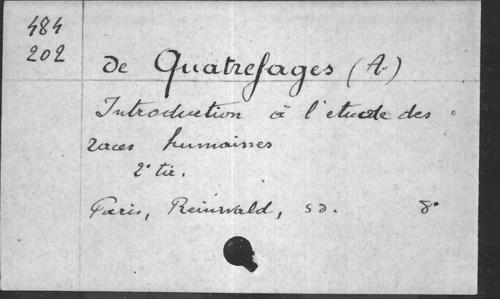 484
202
de Quatrefages (A.)
Introduction à l'etude des
races humaines
2e tir.
Paris, Reinwald, sd. 8°